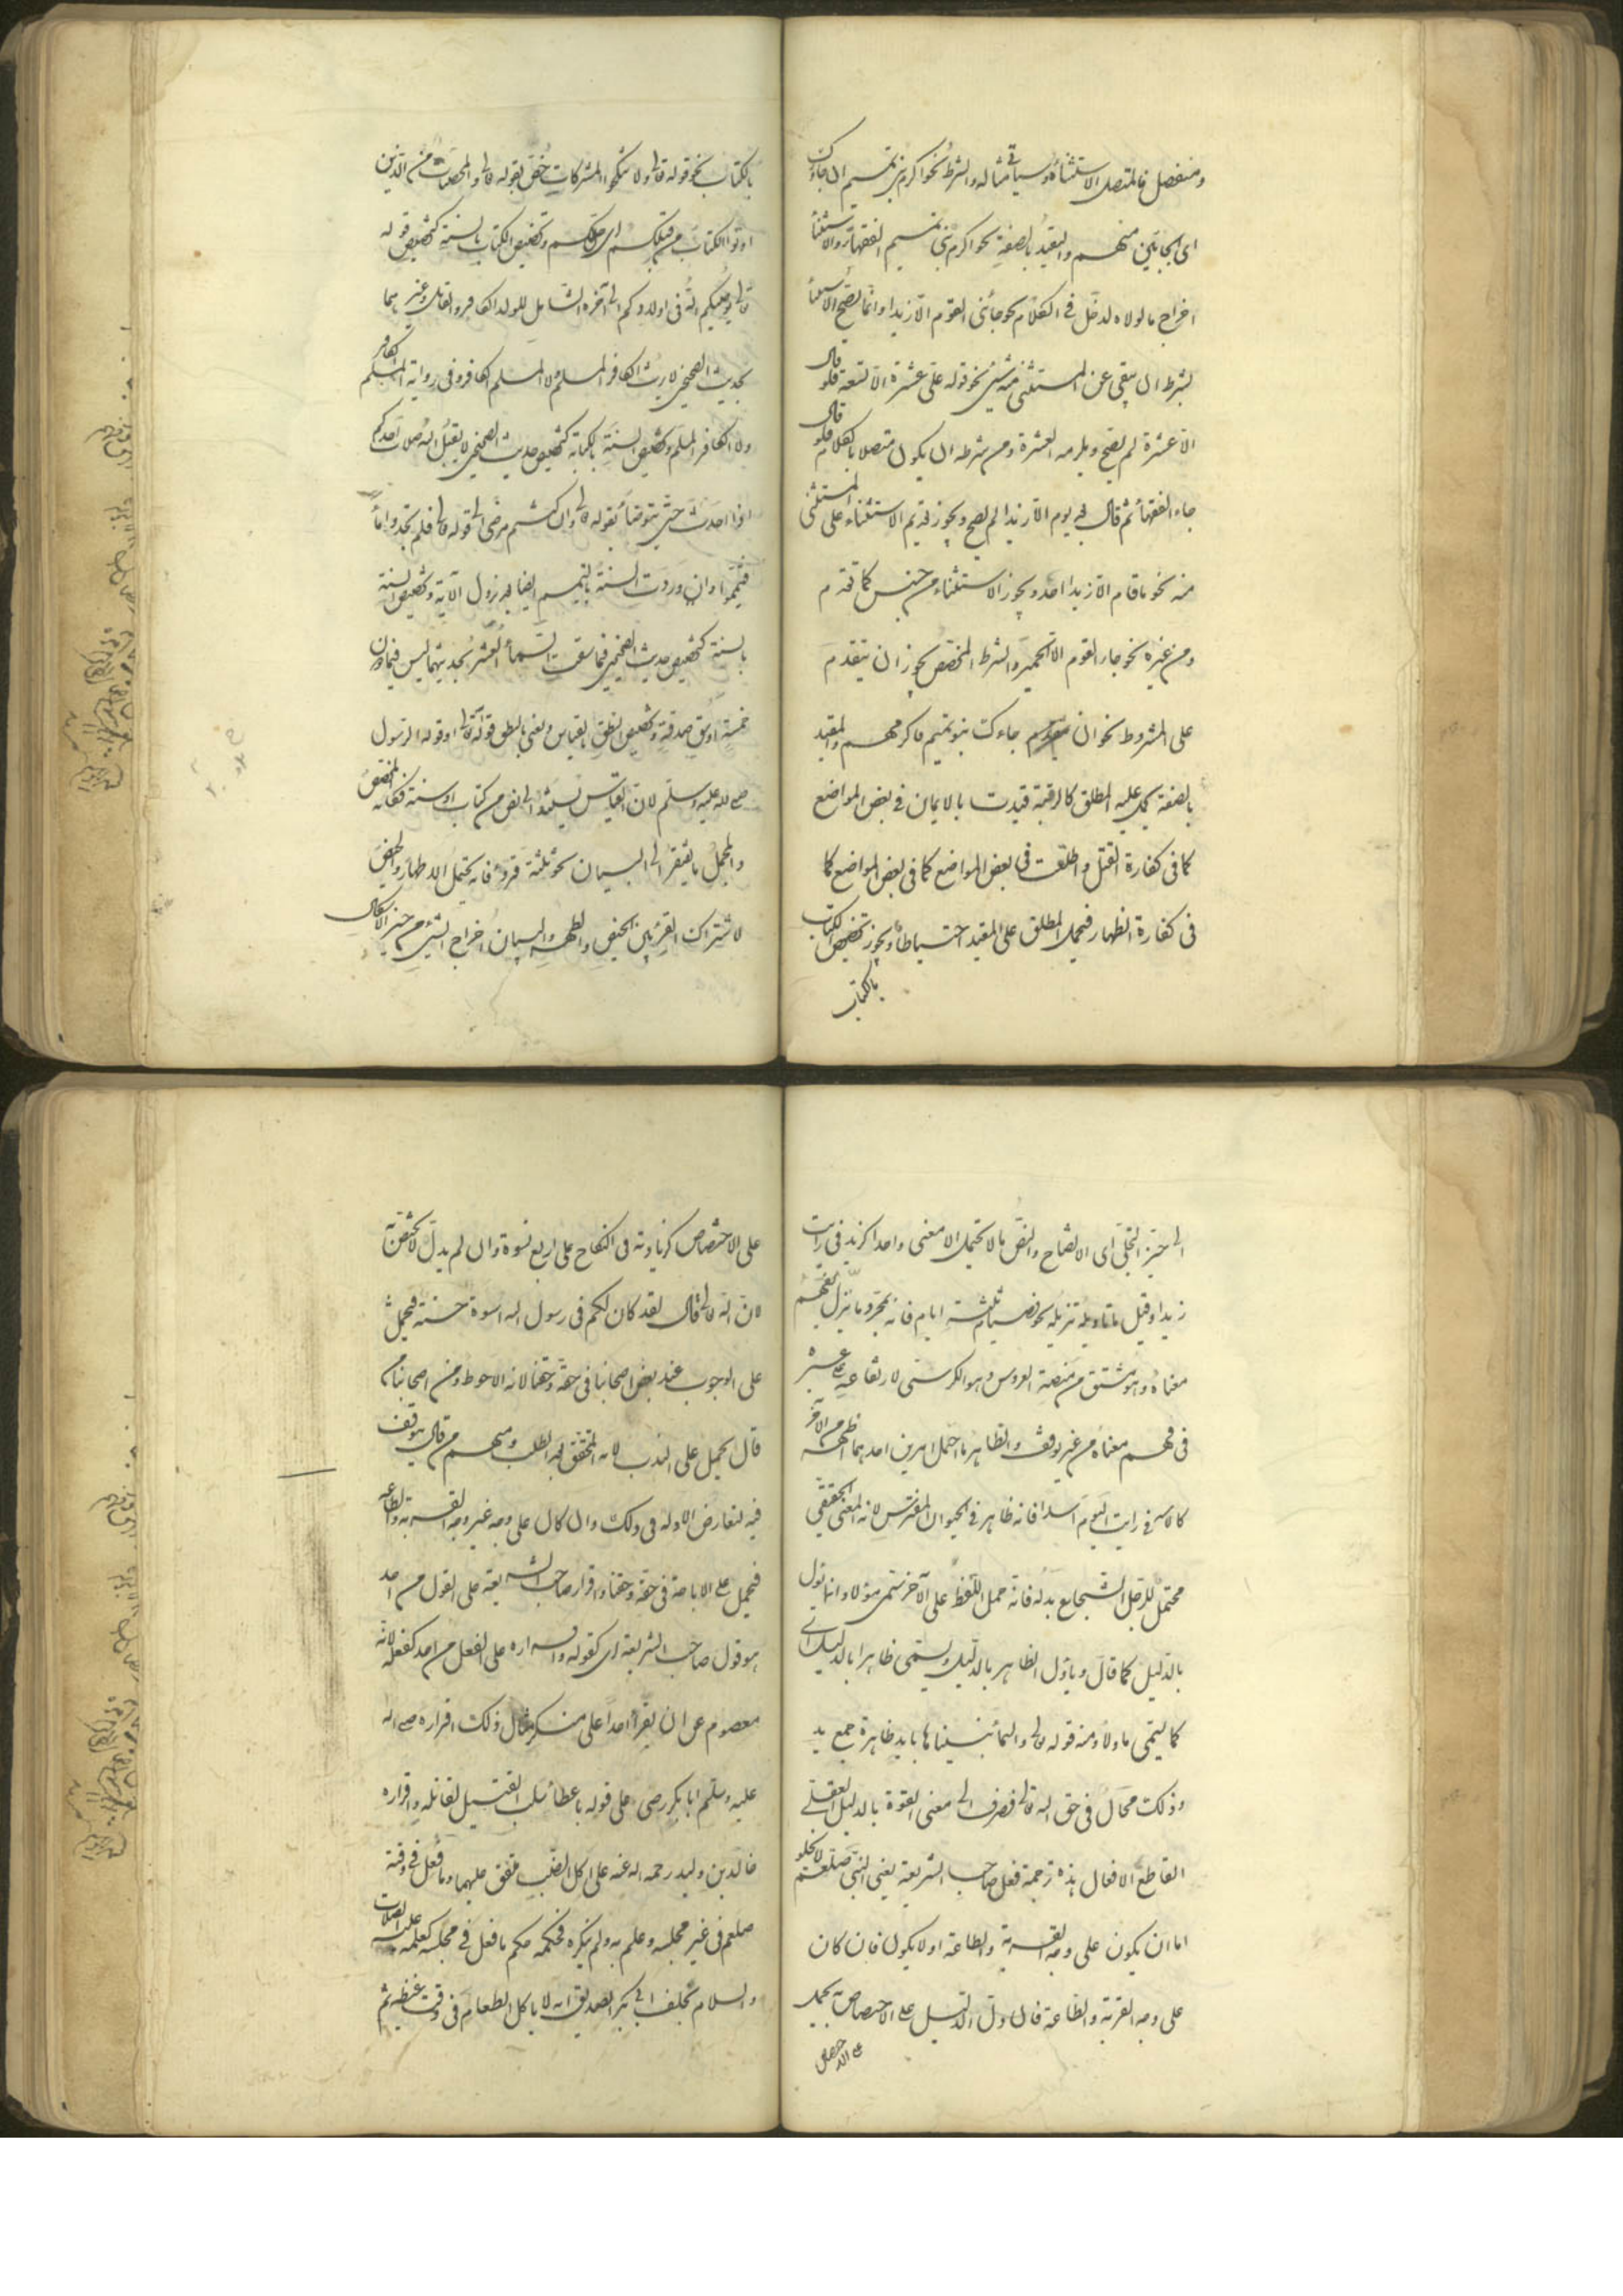 ومنفصل فالمتصل الاستثناء وسياتى مثاله والشرط نحو اكرم بنى تميم ان جاؤك
اى الجائين منهم والتقييد بالصفة نحو اكرم بنى تميم الفقهاء والاستثناء
اخراج ما لولاه لدخل فى الكلام نحو جاءنى القوم الا زيدا وانما يصح الاستثناء
بشرط ان يبقى من المستثنى منه شئ نحو قوله على عشرة الا تسعة فلو قال
الا عشرة لم يصح ويلزمه العشرة ومن شرطه ان يكون متصلا بالكلام فلو قال
جاء الفقهاء ثم قال بعد يوم الا زيدا لم يصح ويجوز تقديم الاستثناء على المستثنى
منه نحو ما قام الا زيدا احد ويجوز الاستثناء من جنس كما تقدم
ومن غيره نحو جاء القوم الا الحمير والشرط المخصص يجوز ان يتقدم
على المشروط نحو ان جاءك بنو تميم فاكرمهم والمقيد
بالصفة يحمل عليه المطلق كالرقبة قيدت بالايمان فى بعض المواضع
كما فى كفارة القتل واطلقت فى بعض المواضع كما فى بعض المواضع كما
فى كفارة الظهار فيحمل المطلق على المقيد احتياطا ويجوز تخصيص الكتاب
بالكتاب
بالكتاب نحو قوله تعالى ولا تنكحوا المشركات خص بقوله تعالى والمحصنات من الذين
اوتوا الكتاب من قبلكم اى حل لكم وتخصيص الكتاب بالسنة كتخصيص قوله
تعالى يوصيكم الله فى اولادكم الى آخره الشامل للولد الكافر والقاتل وغيرهما
بحديث الصحيحين لا يرث الكافر المسلم ولا المسلم الكافر وفى رواية المسلم الكافر
ولا الكافر المسلم وتخصيص السنة بالكتاب كتخصيص حديث الصحيحين لا يقبل الله صلاة احدكم
اذا احدث حتى يتوضأ بقوله تعالى وان كنتم مرضى الى قوله تعالى فلم تجدوا ماء
فتيمموا وان وردت السنة بالتيمم ايضا بعد نزول الآية وتخصيص السنة
بالسنة كتخصيص حديث الصحيحين فيما سقت السماء العشر بحديثهما ليس فيما دون
خمسة اوسق صدقة وتخصيص النطق بالقياس ونعنى بالنطق قول الله تعالى وقوله الرسول
صلى الله عليه وسلم لان القياس يستند الى نص من كتاب او سنة فكانه المخصص
والمجمل ما يفتقر الى البيان نحو ثلثة قروء فانه يحتمل الاطهار والحيض
لاشتراك القرء بين الحيض والطهر والبيان اخراج الشئ من حيز الاشكال
الى حيز التجلى اى الاتضاح والنص ما لا يحتمل الا معنى واحدا كزيد فى رايت
زيدا وقيل ما تاويله تنزيله نحو فصيام ثلثة ايام فانه بمجرد ما ينزل يفهم
معناه وهو مشتق من منصة العروس وهو الكرسى لارتفاعه على غيره
فى فهم معناه من غير توقف والظاهر ما احتمل امرين احدهما اظهر من الآخر
كالاسد فى رايت اليوم اسدا فانه ظاهر فى الحيوان المفترس لانه المعنى الحقيقى
محتمل للرجل الشجاع بدله فانه حمل اللفظ على الآخر سمى مؤولا وانما يؤول
بالدليل كما قال ويؤول الظاهر بالدليل ويسمى ظاهرا بالدليل اى
كما يسمى ماولا ومنه قوله تعالى والسماء بنيناها بايد ظاهره جمع يد
وذلك محال فى حق الله تعالى فصرف الى معنى القوة بالدليل العقلى
القاطع الافعال هذه ترجمة فعل صاحب الشريعة يعنى النبى صلعم لا يخلو
اما ان يكون على وجه القربة والطاعة او لا يكون فان كان
على وجه القربة والطاعة فان دل الدليل على الاختصاص به يحمل
على الاختصاص
على الاختصاص كزيادته فى النكاح على اربع نسوة وان لم يدل لا يختص به
لان الله تعالى قال لقد كان لكم فى رسول الله اسوة حسنة فيحمل
على الوجوب عند بعض اصحابنا فى حقه وحقنا لانه الاحوط ومن اصحابنا من
قال يحمل على الندب لانه المتحقق بعد الطلب ومنهم من قال يتوقف
فيه لتعارض الادلة فى ذلك وان كان على وجه غير وجه القربة والطاعة
فيحمل على الاباحة فى حقه وحقنا واقرار صاحب الشريعة على القول من احد
هو قول صاحب الشريعة اى كقوله واقراره على الفعل من احد كفعله لانه
معصوم عن ان يقر احدا على منكر مثال ذلك اقراره صلى الله
عليه وسلم ابا بكر رضى على قوله باعطاء سلب القتيل لقاتله واقراره
خالد بن وليد رحمه الله عنه على اكل الضب متفق عليهما وما فعل فى وقته
صلعم فى غير مجلسه وعلم به ولم ينكره فحكمه حكم ما فعل فى مجلسه كعلمه عليه الصلات
والسلام بحلف ابى بكر الصديق انه لا ياكل الطعام فى وقت غيظه ثم